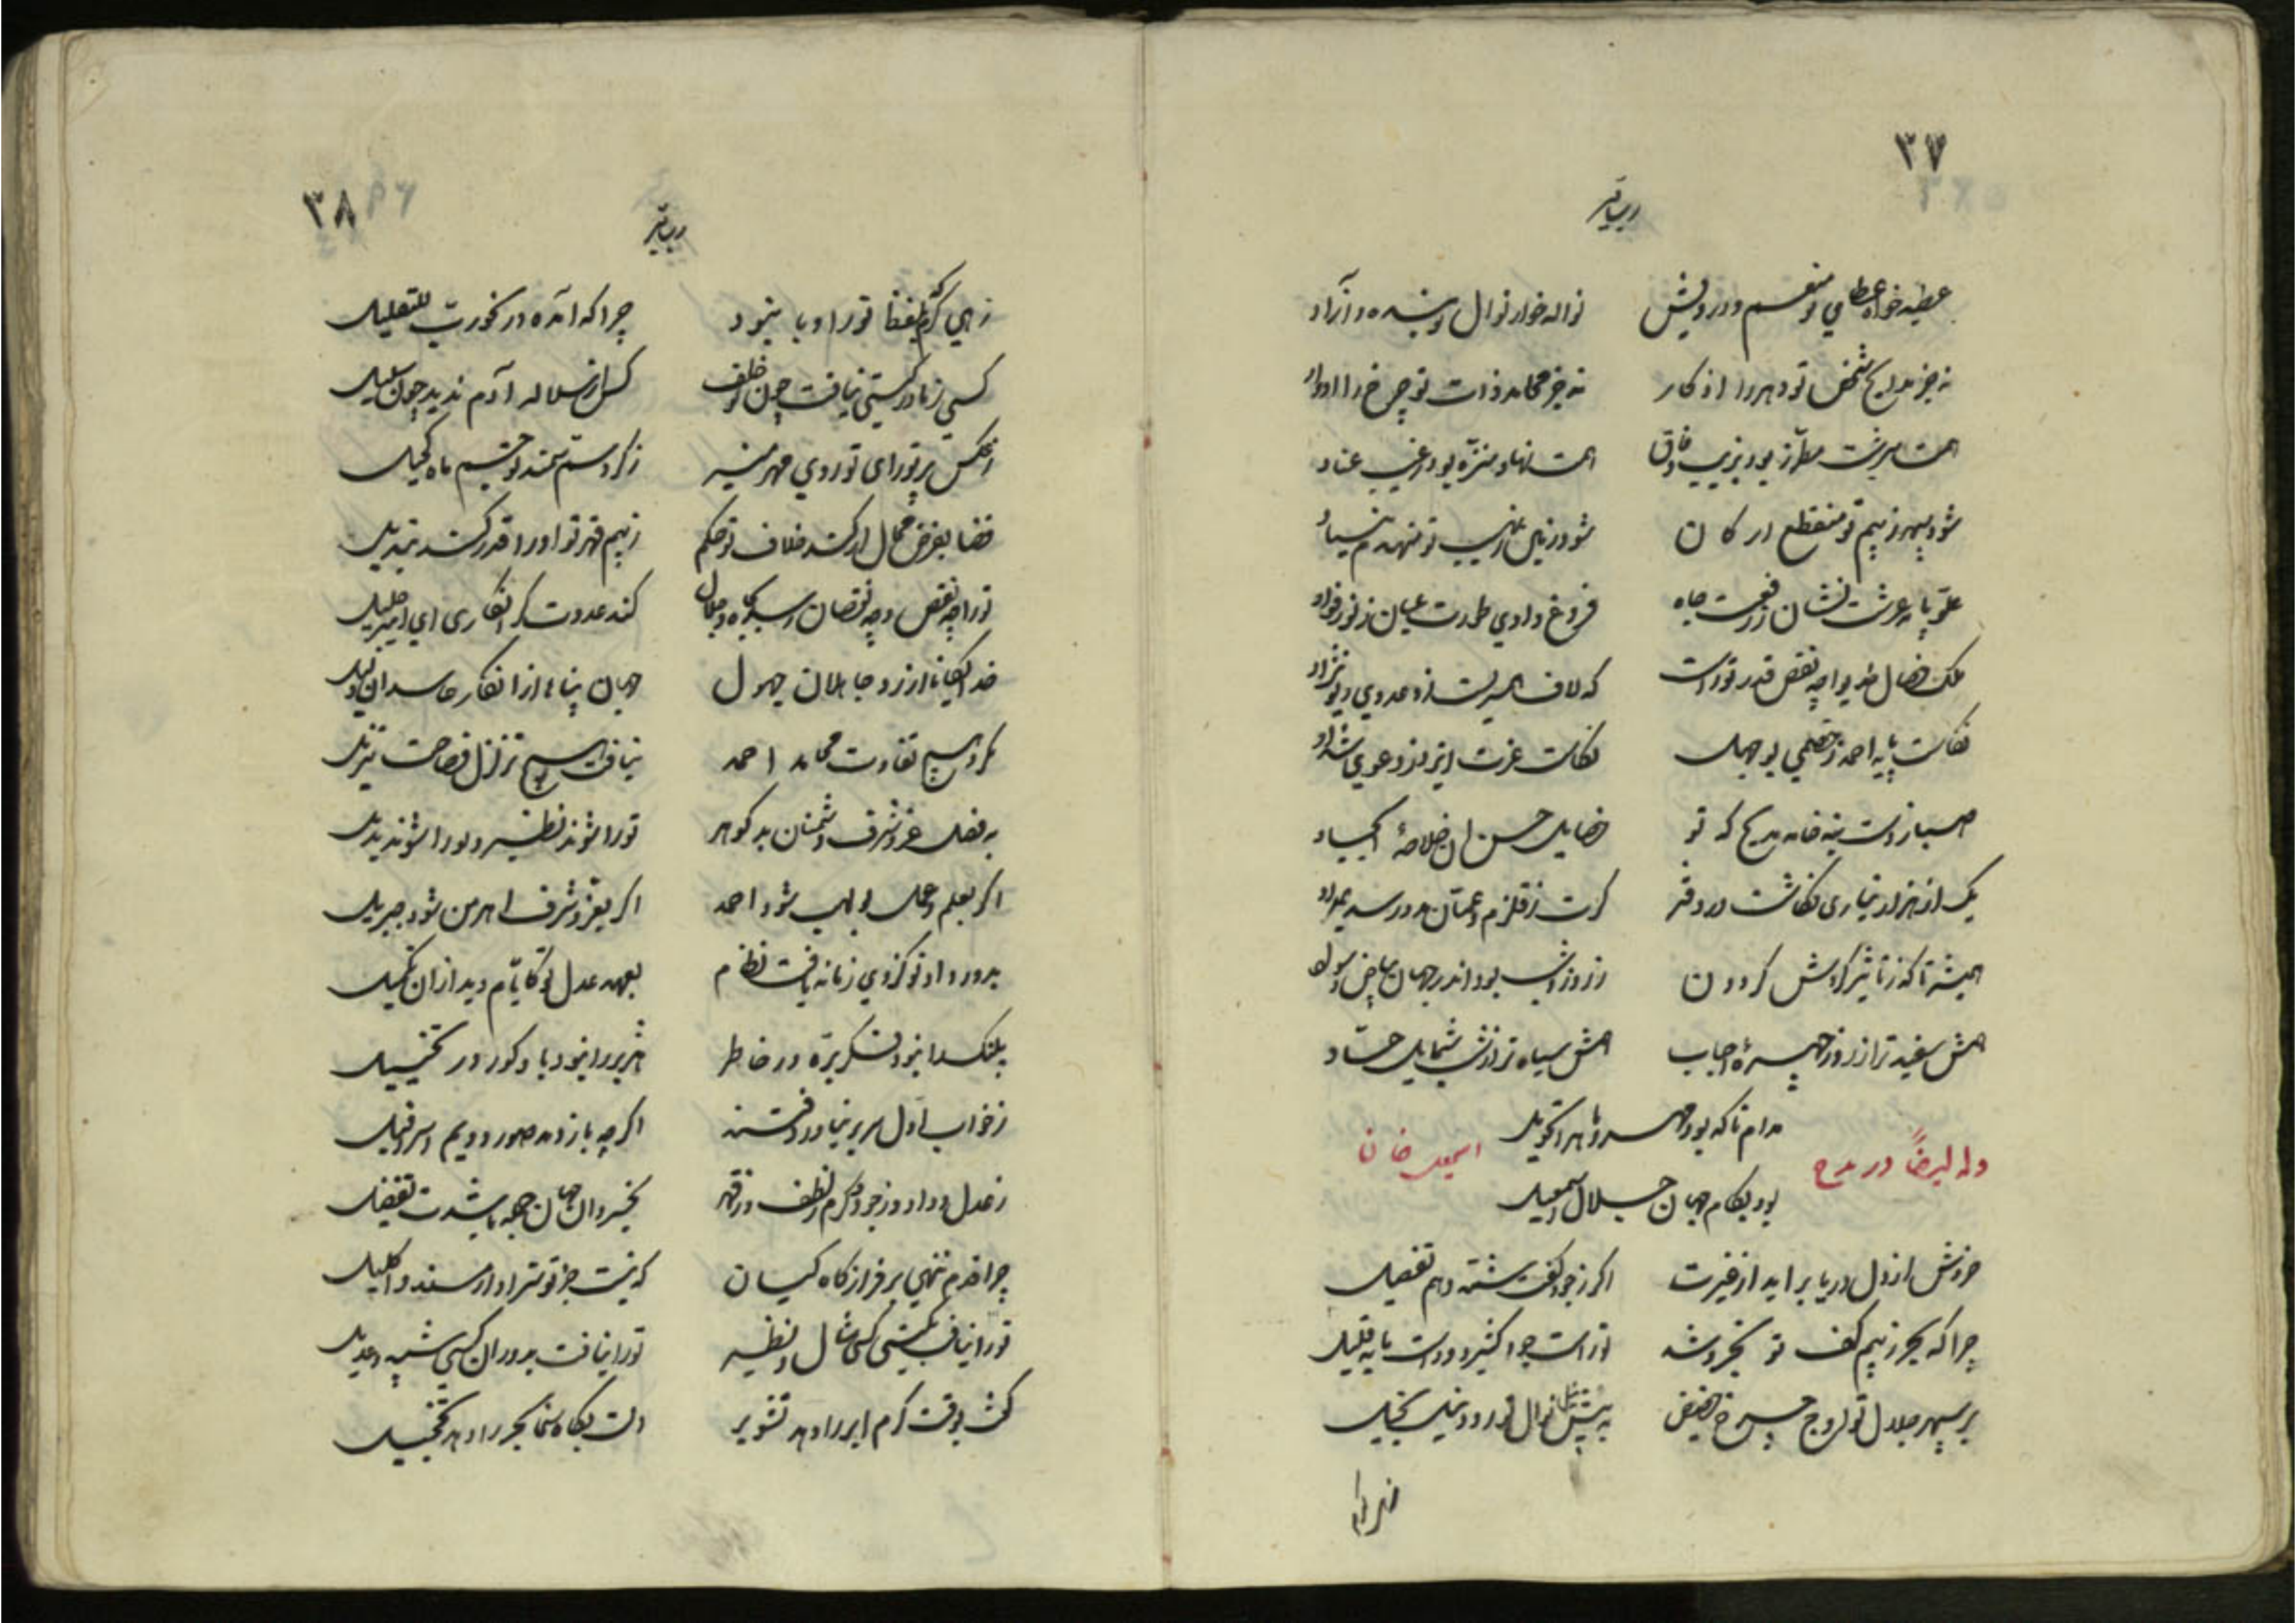 ۳۷
عطیه خوار عطای تو منعم و درویش نواله خوار نوال تو بنده و آزاد
نه جز مدایح شخص تو دهر را اذکار نه جز محامد ذات تو چرخ را اوراد
همت سرشت مطرز بود بزیب وفاق همت نهاد منزه بود ز عیب عناد
شود سپهر ز بیم تو منقطع ارکان شود زمین ز نهیب تو منهدم بنیاد
علو پایه عرشت نشان ز رفعت جاه فروغ وادی طورت عیان ز نور فؤاد
ملک خصال خدیوا چه نقص قدر تو راست که لاف همسریت زد عدوی دیو نژاد
نکاست پایه احمد ز خصمی بوجهل نکاست عزت ایزد ز دعوی شداد
صبا ز دست بنه خامه مدیح که تو خصایل حسن آن خلاصهٔ امجاد
یک از هزار نیاری نگاشت در دفتر گرت ز قلزم و عمان مدد رسد بمداد
همیشه تا که ز تاثیر گردش گردون ز روز و شب بود اندر جهان بیاض و سواد
همش سفید تر از روز چهرهٔ احباب همش سیاه تر از شب شمایل حساد
وله ایضاً در مدح اسمعیل خان
مدام تا که بود مهر و ماه را تحویل
بود بکام جهان جلال اسمعیل
خروش از دل دریا برآید از غیرت اگر ز جود کفت شمهٔ دهم تفصیل
چرا که بحر ز بیم کف تو نخروشد تو راست جود کثیر و وراست مایه قلیل
بر سپهر جلال تو اوج چرخ حضیض به پیش نیل نوال تو رود نیل بخیل
زهی که
۳۸
زهی کریم قضا تو را وبا نبود چرا که آمده در خورت للتعلیل
کسی ز مادر گیتی نیافت چون تو خلف کس از سلاله آدم ندید چون تو سلیل
ز عکس پرتو رای تو روی مهر منیر ز گرد سم سمند تو چشم ماه کحیل
قضا بفرض محال ار کند خلاف تو حکم ز بیم قهر تو او را قدر کند تبدیل
تو را چه نقص و چه نقصان رسد بجاه و جلال کند عدوت گر انکاری ای امیر جلیل
خدایگانا از رد جاهلان جهول جهان پناها از انکار حاسدان ذلیل
نکرد هیچ تفاوت محامد احمد نیافت هیچ تزلزل فصاحت تنزیل
به فضل و عز و شرف دشمنان بد گوهر تو را شوند نظیر و تو را شوند بدیل
اگر بعلم و عمل بولهب شود احمد اگر بعز و شرف اهرمن شود جبریل
بدور داد تو کز وی زمانه یافت نظام بعهد عدل تو کایام دید از آن تکمیل
پلنگ را نبود فکر بره در خاطر هژبر را نبود یاد گور در تخییل
ز خواب اول سر بر نیاورد فتنه اگر چه باز دمد صور دویم اسرافیل
ز عدل و داد و ز جود و کرم ز لطف و ز قهر بخسروان جهان جمله باشدت تفضیل
چرا قدم ننهی بر فراز گاه کیان که نیست جز تو سزاوار مسند و اکلیل
تو را نیافت بگیتی کسی مثال و نظیر تو را نیافت بدوران کسی شبیه و عدیل
کفت بوقت کرم ابر را دهد تشویر دلت بگاه سخا بحر را دهد تخجیل